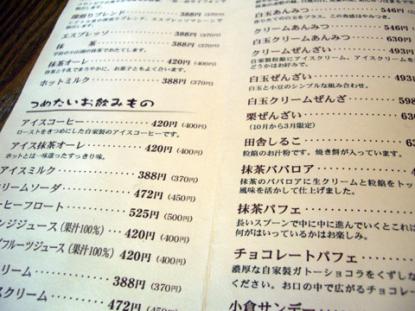 深煎りブレンド 388円(370円)
エスプレッソ 388円(370円)
抹 茶 388円(370円)
抹茶オーレ 420円(400円)
ホットミルク 388円(370円)
つめたいお飲みもの
アイスコーヒー 420円(400円)
ローストをきつめにした自家製のアイスコーヒーです。
アイス抹茶オーレ 420円(400円)
ホットとは一味違ったすっきり味。
アイスミルク 388円(370円)
クリームソーダ 472円(450円)
コーヒーフロート 525円(500円)
ンジジュース(果汁100%) 420円(400円)
フルーツジュース(果汁100%) 420円(400円)
リーム 388円(370円)
スクリーム 472円(450
白玉あんみつ 546円
クリームあんみつ 546円
白玉クリームあんみつ 630円
クリームぜんざい 493円
白玉ぜんざい 493
白玉と小豆のシンプルな組み合わせ。
白玉クリームぜんざ
栗ぜんざい 63
(10月から3月限定)
田舎しるこ
粒餡のお汁粉です。焼き餅が入っています。
抹茶ババロア
抹茶のババロアに生クリームと粒餡をトッ
風味を活かして仕上げました。
抹茶パフェ
長いスプーンで中に中に進んでいくとこれは
何がはいっているかはお楽しみ。
チョコレートパフェ
濃厚な自家製ガトーショコラをくずしな
ください。お口の中で広がるチョコレー
小倉サンデー